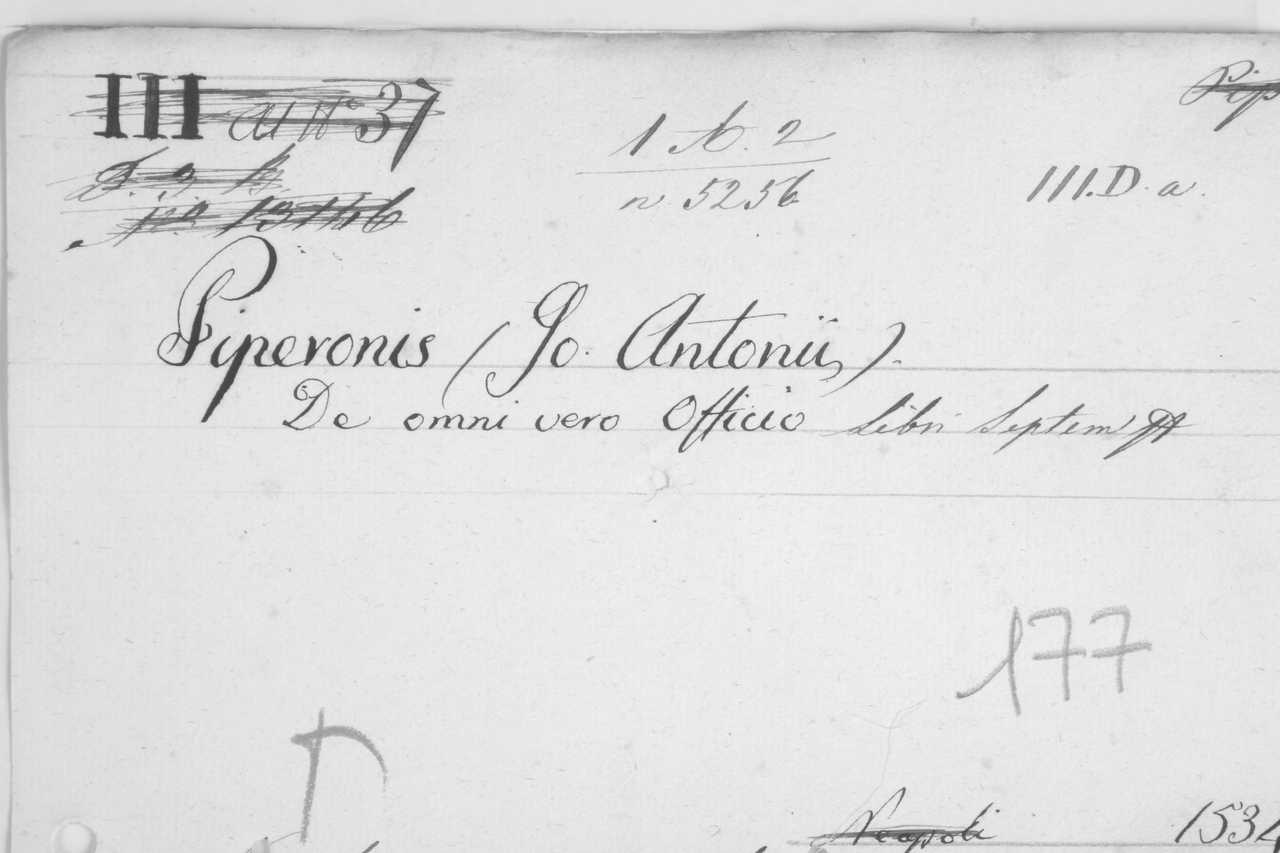 III al N° 37
Pip
1 A. 2
n 5256
III. D. a.
n° 13146
Piperonis (Jo. Antonii).
De omni vero Officio Libri Septem
177
Neapoli 1534